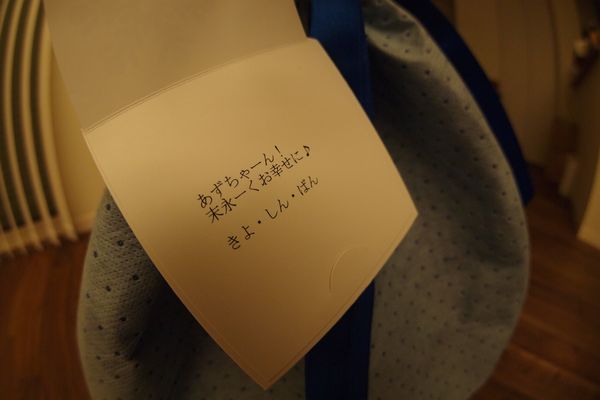 あずちゃーん！
末永ーくお幸せに♪
きよ・しん・ばん